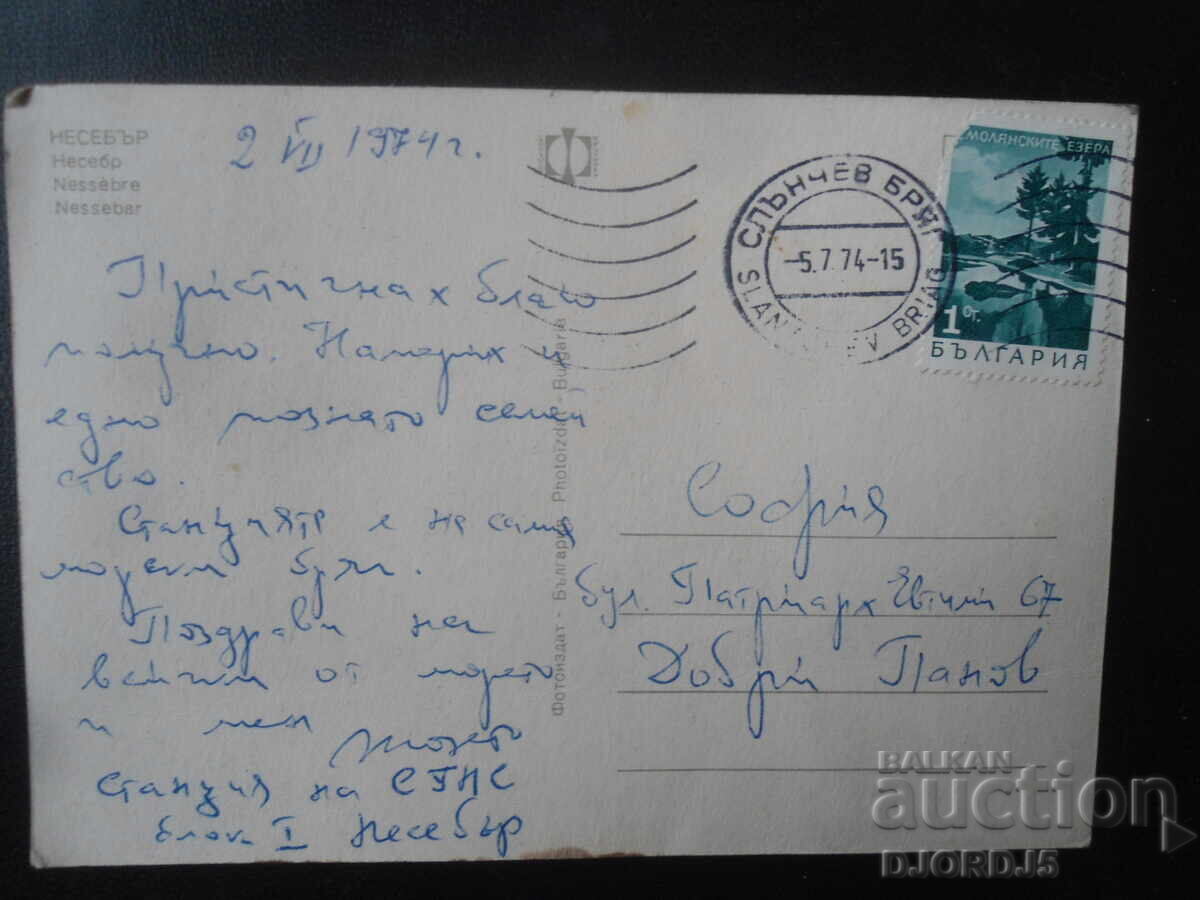 НЕСЕБЪР
Несебр
Nessèbre
Nessebar
2 VII 1974 г.
Пристигнах благо
получно. Намерих и
едно познато семей
ство.
Станцията е на самия
морски бряг.
Поздрави на
всички от морето
и мен
Станция на СГНС
блок I Несебър
Фотоиздат - България Photoizdat - Bulgaria
СЛЪНЧЕВ БРЯГ
-5.7.74-15
SLANTCHEV BRIAG
СМОЛЯНСКИТЕ ЕЗЕРА
1 СТ.
БЪЛГАРИЯ
София
бул. Патриарх Евтими 67
Добри Панов
BALKAN
auction
DJORDJ5